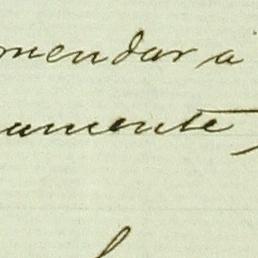 mendar a
amente,